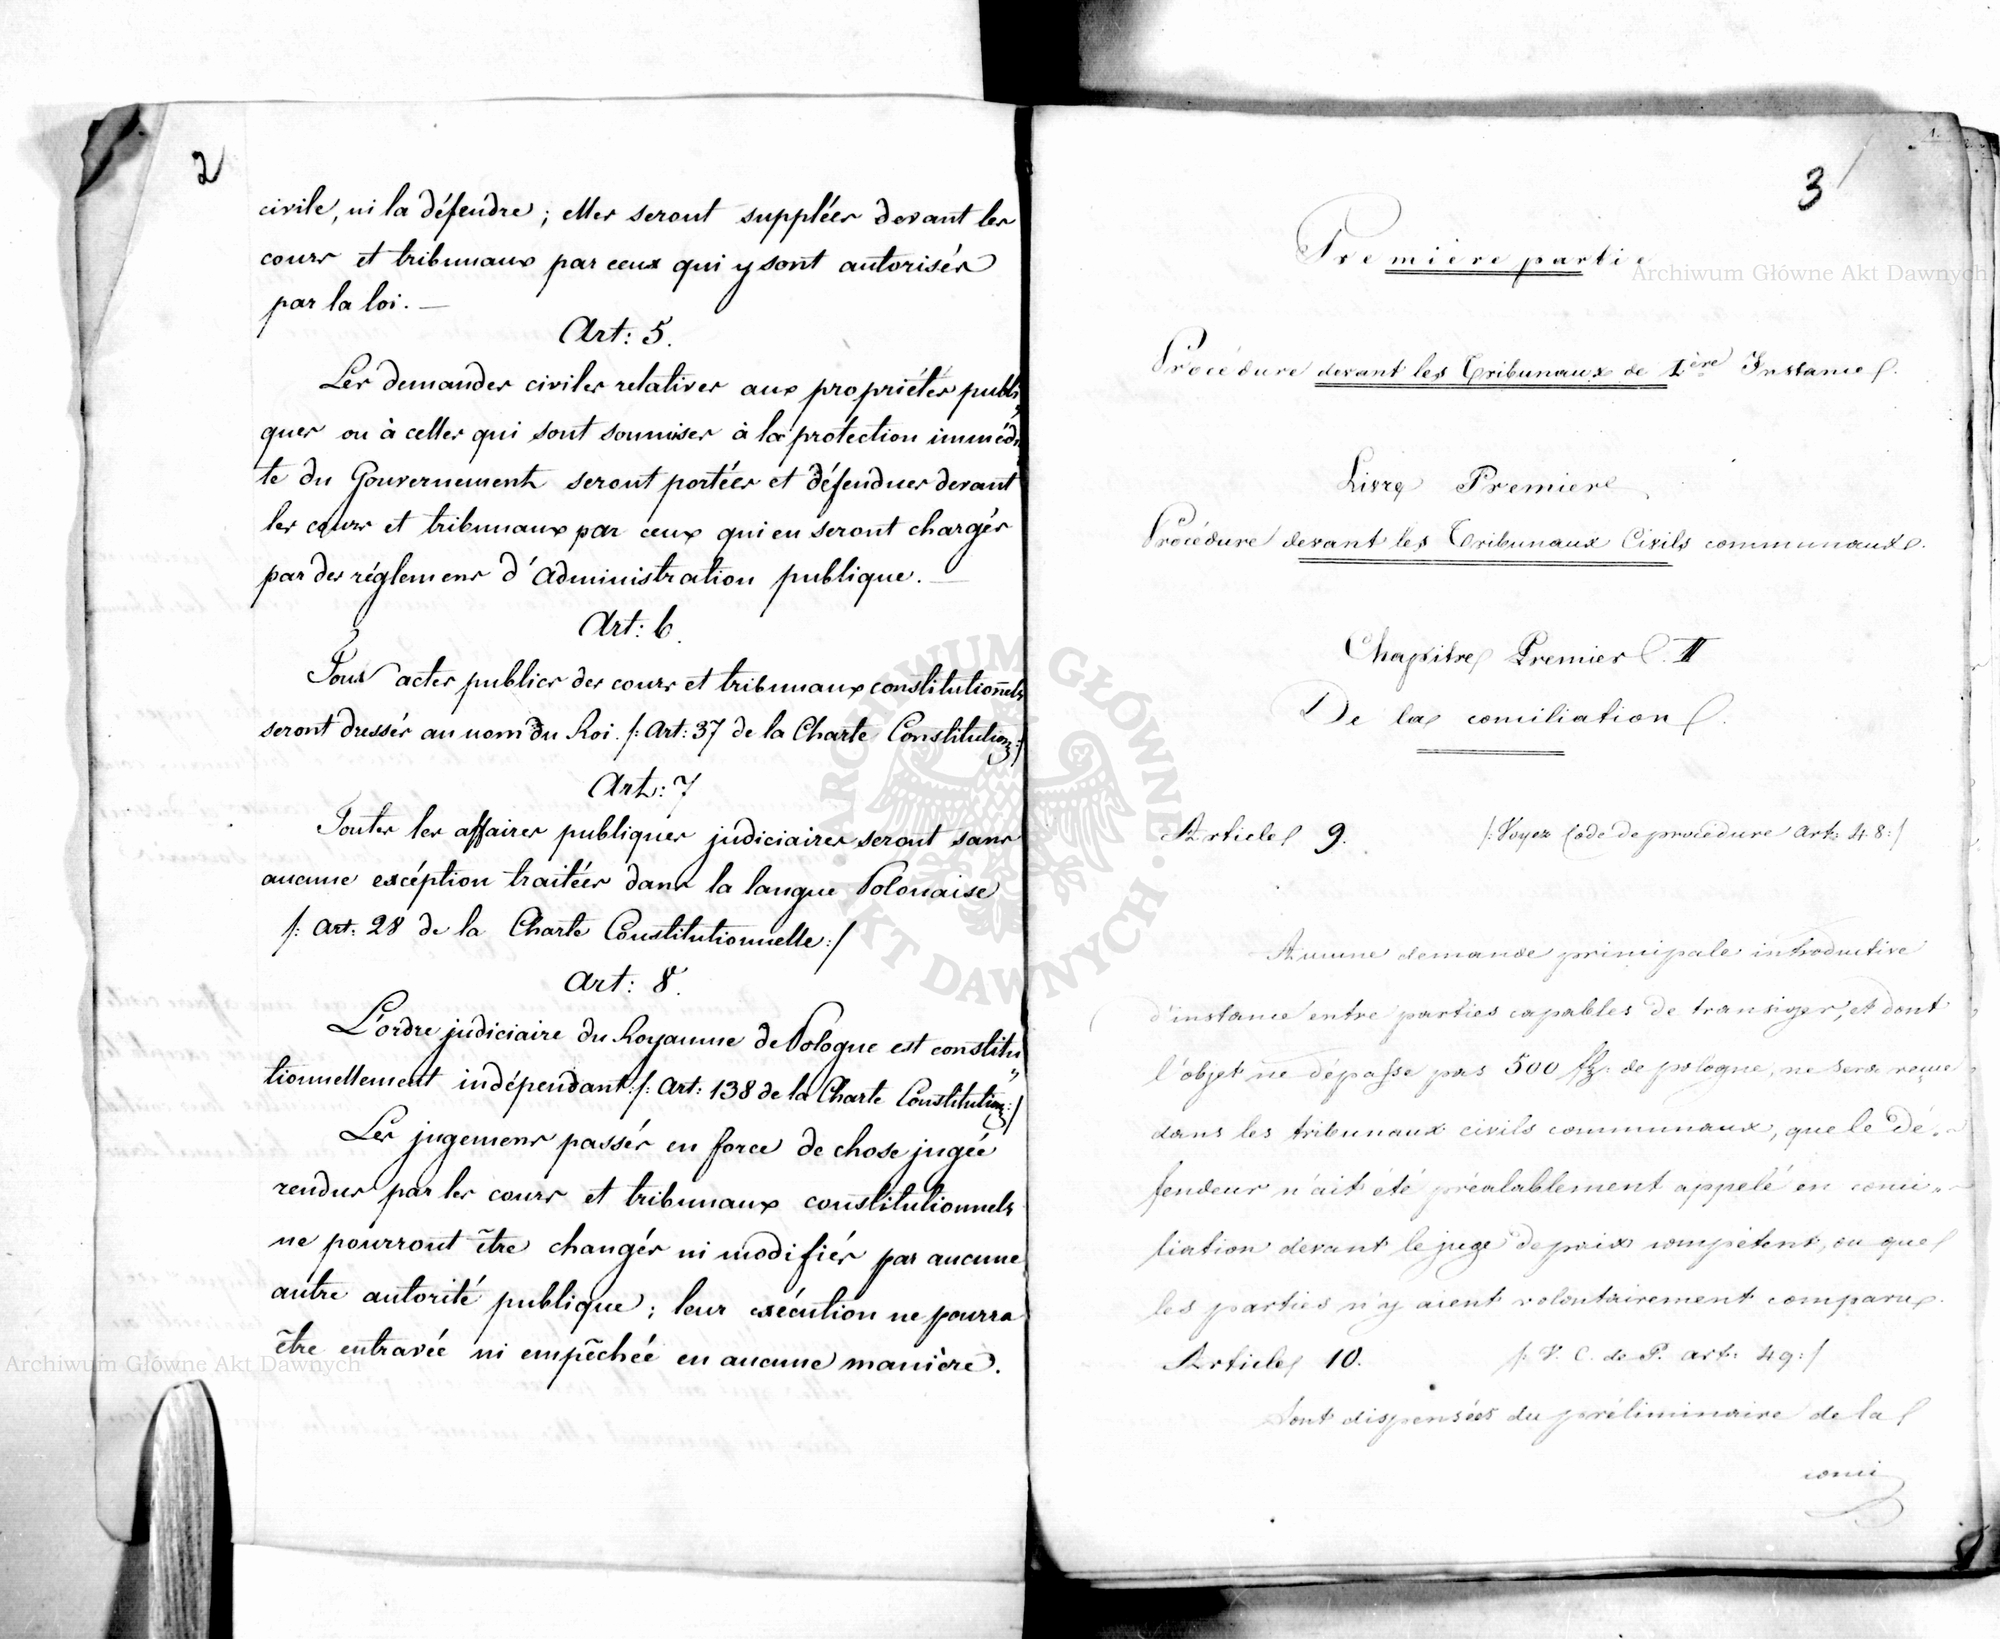 2
civile, ni la défendre; elles seront suppléés devant les
cours et tribunaux par ceux qui y sont autorisés
par la loi. —
Art: 5.
Les demandes civiles relatives aux propriétés publi„
ques ou à celles qui sont soumises à la protection immédi„
te du Gouvernement seront portées et défendues devant
les cours et tribunaux par ceux qui en seront chargés
par des réglemens d'administration publique. —
Art: 6.
Tous actes publics des cours et tribunaux constitutionnels
seront dressés au nom du Roi. /: Art: 37 de la Charte Constitution:/
Art: 7
Toutes les affaires publiques judiciaires seront sans
aucune excéption traitées dans la langue Polonaise
/: Art: 28 de la Charte Constitutionnelle:/
Art: 8.
L'ordre judiciaire du Royaume de Pologne est constitu„
tionnellement indépendant /: Art: 138 de la Charte Constitution:/
Les jugemens passés en force de chose jugée
rendus par les cours et tribunaux constitutionnels
ne pourront être changés ni modifiés par aucune
autre autorité publique; leur exécution ne pourra
être entravée ni empêchée en aucune manière.
1.
3
Première partie
Procédure devant les Tribunaux de 1ère Instance.
Livre Premier
Procédure devant les Tribunaux Civils communaux.
Chapitre Premier. II
De la conciliation.
Article 9. /: Voyez Code de procédure Art: 48:/
Aucune demande principale introductive
d'instance entre parties capables de transiger, et dont
l'objet ne dépasse pas 500 fl: de pologne, ne sera reçue
dans les tribunaux civils communaux, que le dé„
fendeur n'ait été préalablement appelé en conci„
liation devant le juge de paix compétent, ou que
les parties n'y aient volontairement comparu.
Article 10. /: V. C. de P. art: 49:/
Sont dispensées du préliminaire de la
conci
Archiwum Główne Akt Dawnych
Archiwum Główne Akt Dawnych
ARCHIWUM GŁÓWNE AKT DAWNYCH